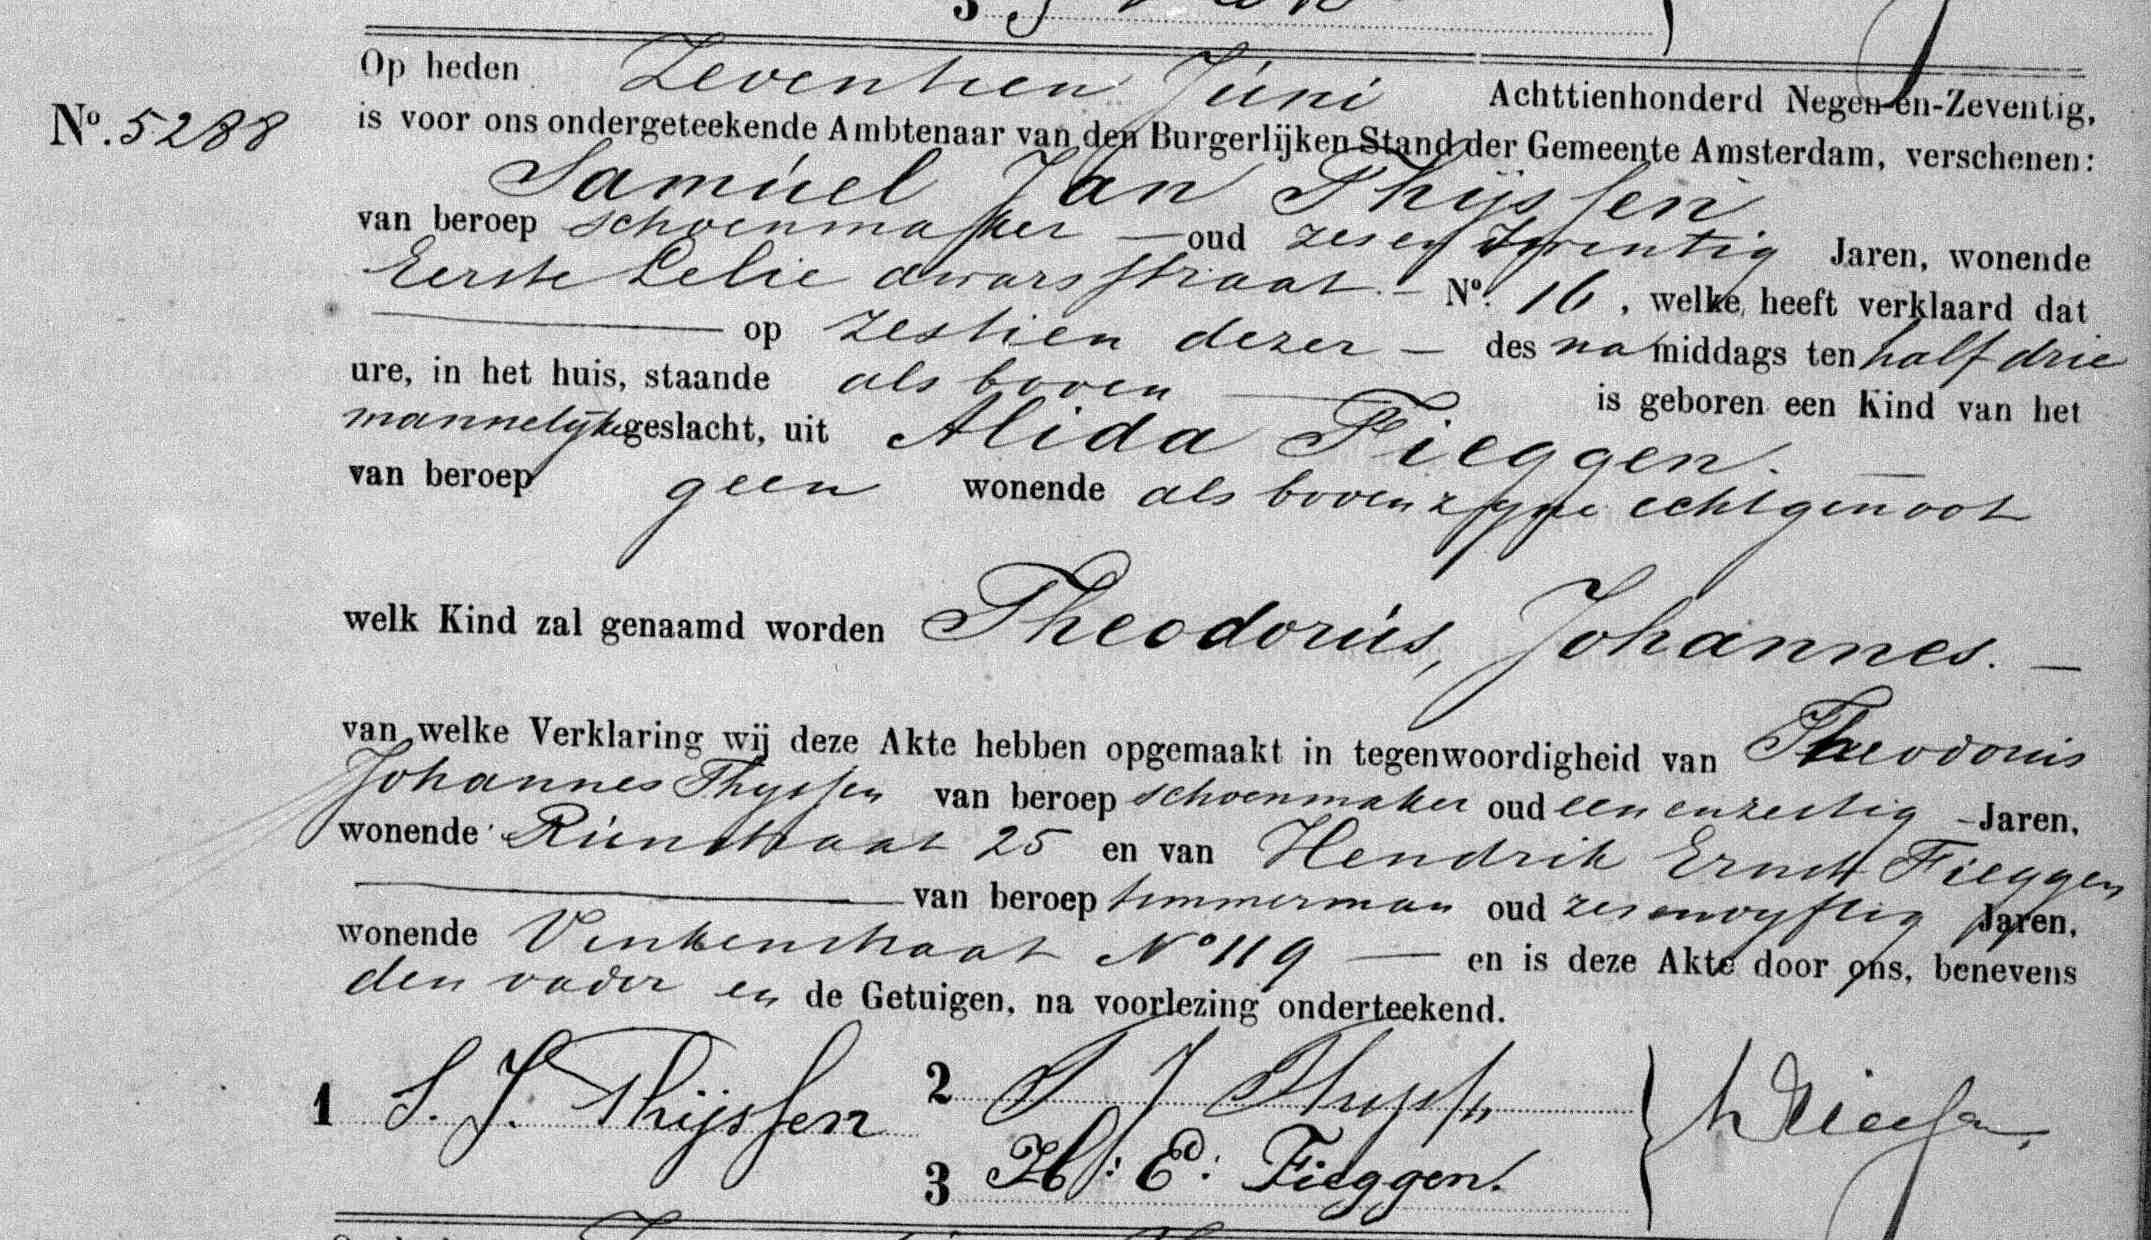 Op heden Zeventien Juni Achttienhonderd Negen-en-Zeventig,
No. 5288 is voor ons ondergeteekende Ambtenaar van den Burgerlijken Stand der Gemeente Amsterdam, verschenen:
Samúel Jan Thijssen
van beroep schoenmaker — oud zesen twentig Jaren, wonende
Eerste Lelie dwarsstraat — No. 16, welke heeft verklaard dat
— op zestien dezer — des namiddags ten half drie
ure, in het huis, staande als boven — is geboren een Kind van het
mannelijke geslacht, uit Alida Fieggen. —
van beroep geen wonende als boven zyne echtgenoot
welk Kind zal genaamd worden Theodorús, Johannes. —
van welke Verklaring wij deze Akte hebben opgemaakt in tegenwoordigheid van Theodorus
Johannes Thyssen van beroep schoenmaker oud eenenzestig - Jaren,
wonende 25 en van Hendrik Ernst Fieggen
— van beroep timmerman oud zesenvyftig Jaren,
wonende Vinkenstraat No 119 — en is deze Akte door ons, benevens
den vader en de Getuigen, na voorlezing onderteekend.
1 S. J. Thijssen 2 T J Thyssen
3 H: Ed: Fieggen.